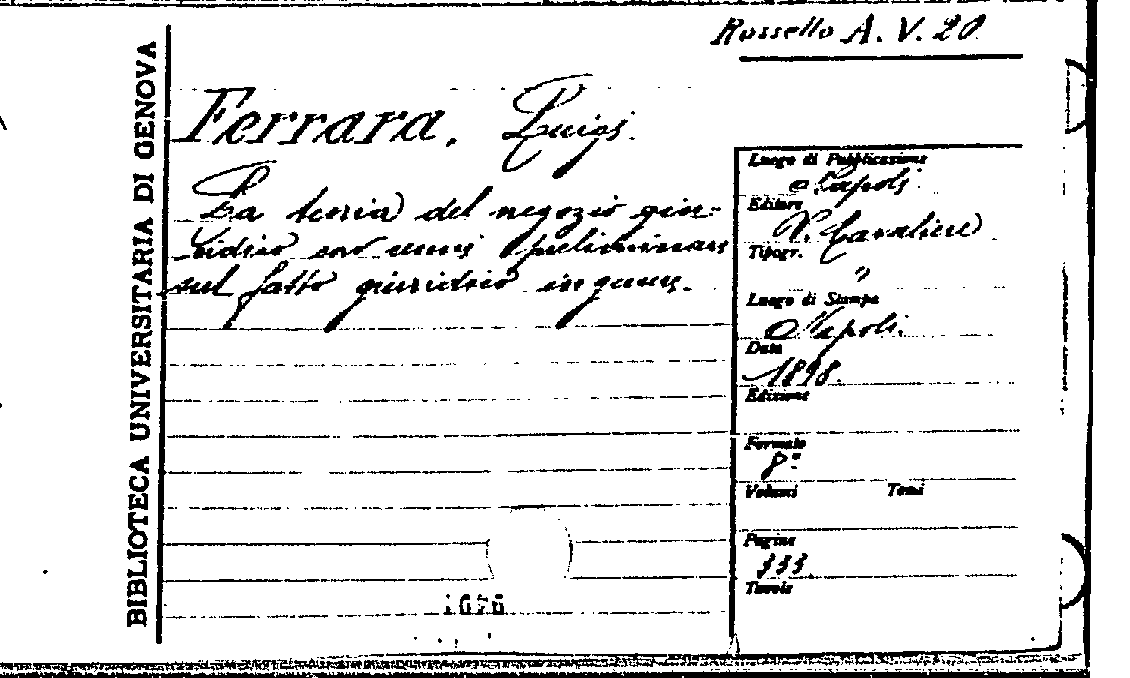 Rossello A. V. 20
BIBLIOTECA UNIVERSITARIA DI GENOVA
Ferrara, Luigi.
La teoria del negozio giu-
ridico con cenni preliminari
sul fatto giuridico in genere.
Luogo di Pubblicazione
Napoli
Editore
N. Cavaliere
Tipogr.
"
Luogo di Stampa
Napoli.
Data
1898.
Edizione
Formato
8°
Volumi Tomi
Pagine
333.
Tavole
1676